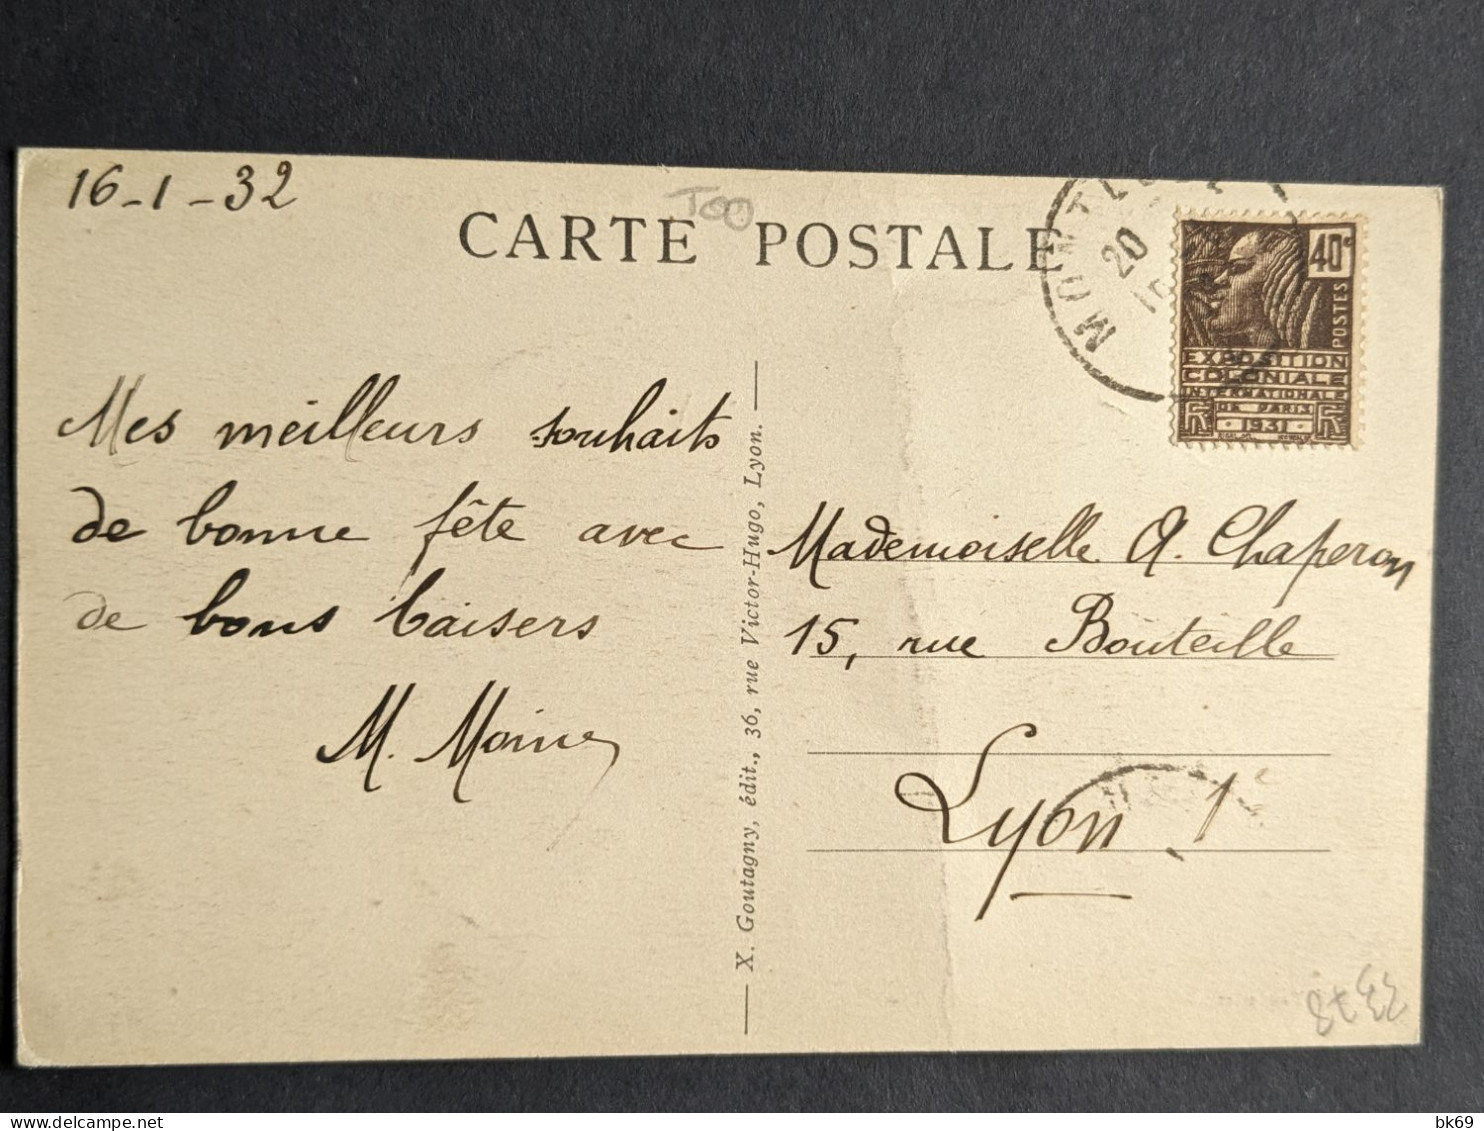 16-1-32
CARTE POSTALE
TOO
MONTLU
20
40c
POSTES
EXPOSITION
COLONIALE
INTERNATIONALE
DE PARIS
1931
Mes meilleurs souhaits
de bonne fête avec
de bons baisers
M. Moine
X. Goutagny, édit., 36, rue Victor-Hugo, Lyon.
Mademoiselle A. Chaperon
15, rue Bouteille
Lyon 1e
bk69